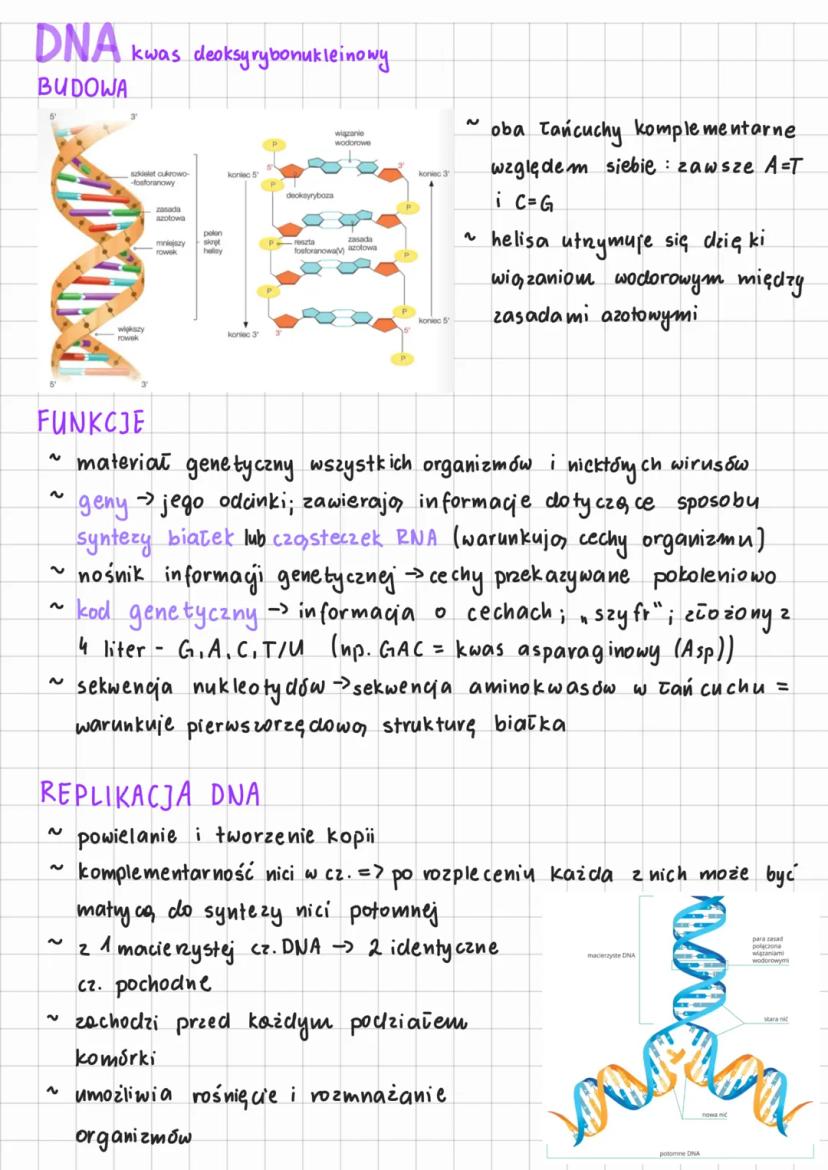 DNA kwas deoksyrybonukleinowy
BUDOWA
5' 3'
szkielet cukrowo-
-fosforanowy
zasada
azotowa
mniejszy
rowek
pełen
skręt
helisy
większy
rowek
5' 3'
wiązanie
wodorowe
P
5' 3'
koniec 5' koniec 3'
P
deoksyryboza
P
P
reszta
fosforanowa(V)
zasada
azotowa
P
P
P
koniec 5'
koniec 3' 3' 5'
P
~ oba łańcuchy komplementarne
względem siebie : zawsze A=T
i C=G
~ helisa utrzymuje się dzięki
wiązaniom wodorowym między
zasadami azotowymi
FUNKCJE
~ materiał genetyczny wszystkich organizmów i niektórych wirusów
~ geny → jego odcinki; zawierają informacje dotyczące sposobu
syntezy białek lub cząsteczek RNA (warunkują cechy organizmu)
~ nośnik informacji genetycznej → cechy przekazywane pokoleniowo
~ kod genetyczny → informacja o cechach; „szyfr"; złożony z
4 liter - G,A,C,T/U (np. GAC = kwas asparaginowy (Asp))
~ sekwencja nukleotydów → sekwencja aminokwasów w łańcuchu =
warunkuje pierwszorzędową strukturę białka
REPLIKACJA DNA
~ powielanie i tworzenie kopii
~ komplementarność nici w cz. => po rozpleceniu każda z nich może być
matrycą do syntezy nici potomnej
~ z 1 macierzystej cz. DNA → 2 identyczne
cz. pochodne
~ zachodzi przed każdym podziałem
komórki
~ umożliwia rośnięcie i rozmnażanie
organizmów
macierzyste DNA
para zasad
połączona
wiązaniami
wodorowymi
stara nić
nowa nić
potomne DNA